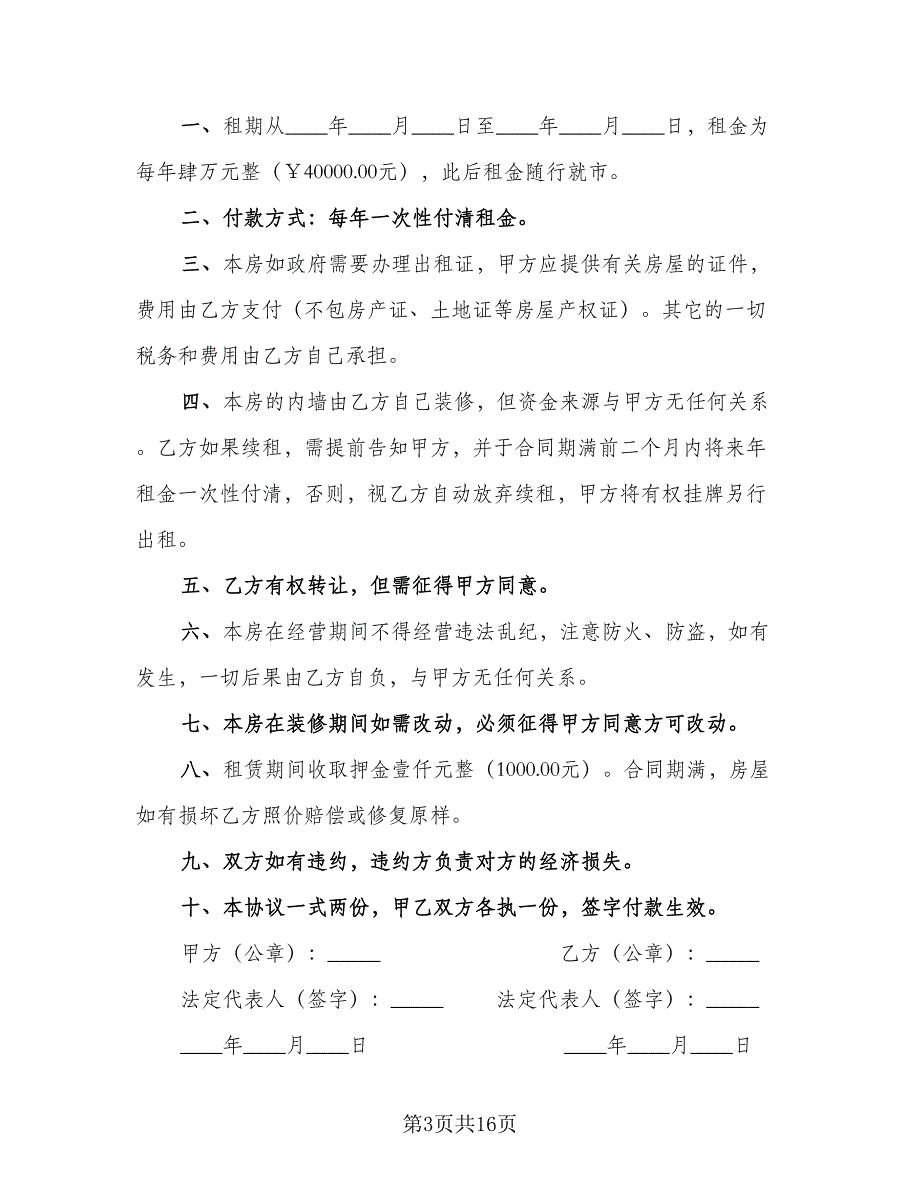 一、租期从____年____月____日至____年____月____日，租金为
每年肆万元整（￥40000.00元），此后租金随行就市。
二、付款方式：每年一次性付清租金。
三、本房如政府需要办理出租证，甲方应提供有关房屋的证件，
费用由乙方支付（不包房产证、土地证等房屋产权证）。其它的一切
税务和费用由乙方自己承担。
四、本房的内墙由乙方自己装修，但资金来源与甲方无任何关系
。乙方如果续租，需提前告知甲方，并于合同期满前二个月内将来年
租金一次性付清，否则，视乙方自动放弃续租，甲方将有权挂牌另行
出租。
五、乙方有权转让，但需征得甲方同意。
六、本房在经营期间不得经营违法乱纪，注意防火、防盗，如有
发生，一切后果由乙方自负，与甲方无任何关系。
七、本房在装修期间如需改动，必须征得甲方同意方可改动。
八、租赁期间收取押金壹仟元整（1000.00元）。合同期满，房屋
如有损坏乙方照价赔偿或修复原样。
九、双方如有违约，违约方负责对方的经济损失。
十、本协议一式两份，甲乙双方各执一份，签字付款生效。
甲方（公章）：_____ 乙方（公章）：_____
法定代表人（签字）：_____ 法定代表人（签字）：_____
____年____月____日 ____年____月____日
第3页共16页